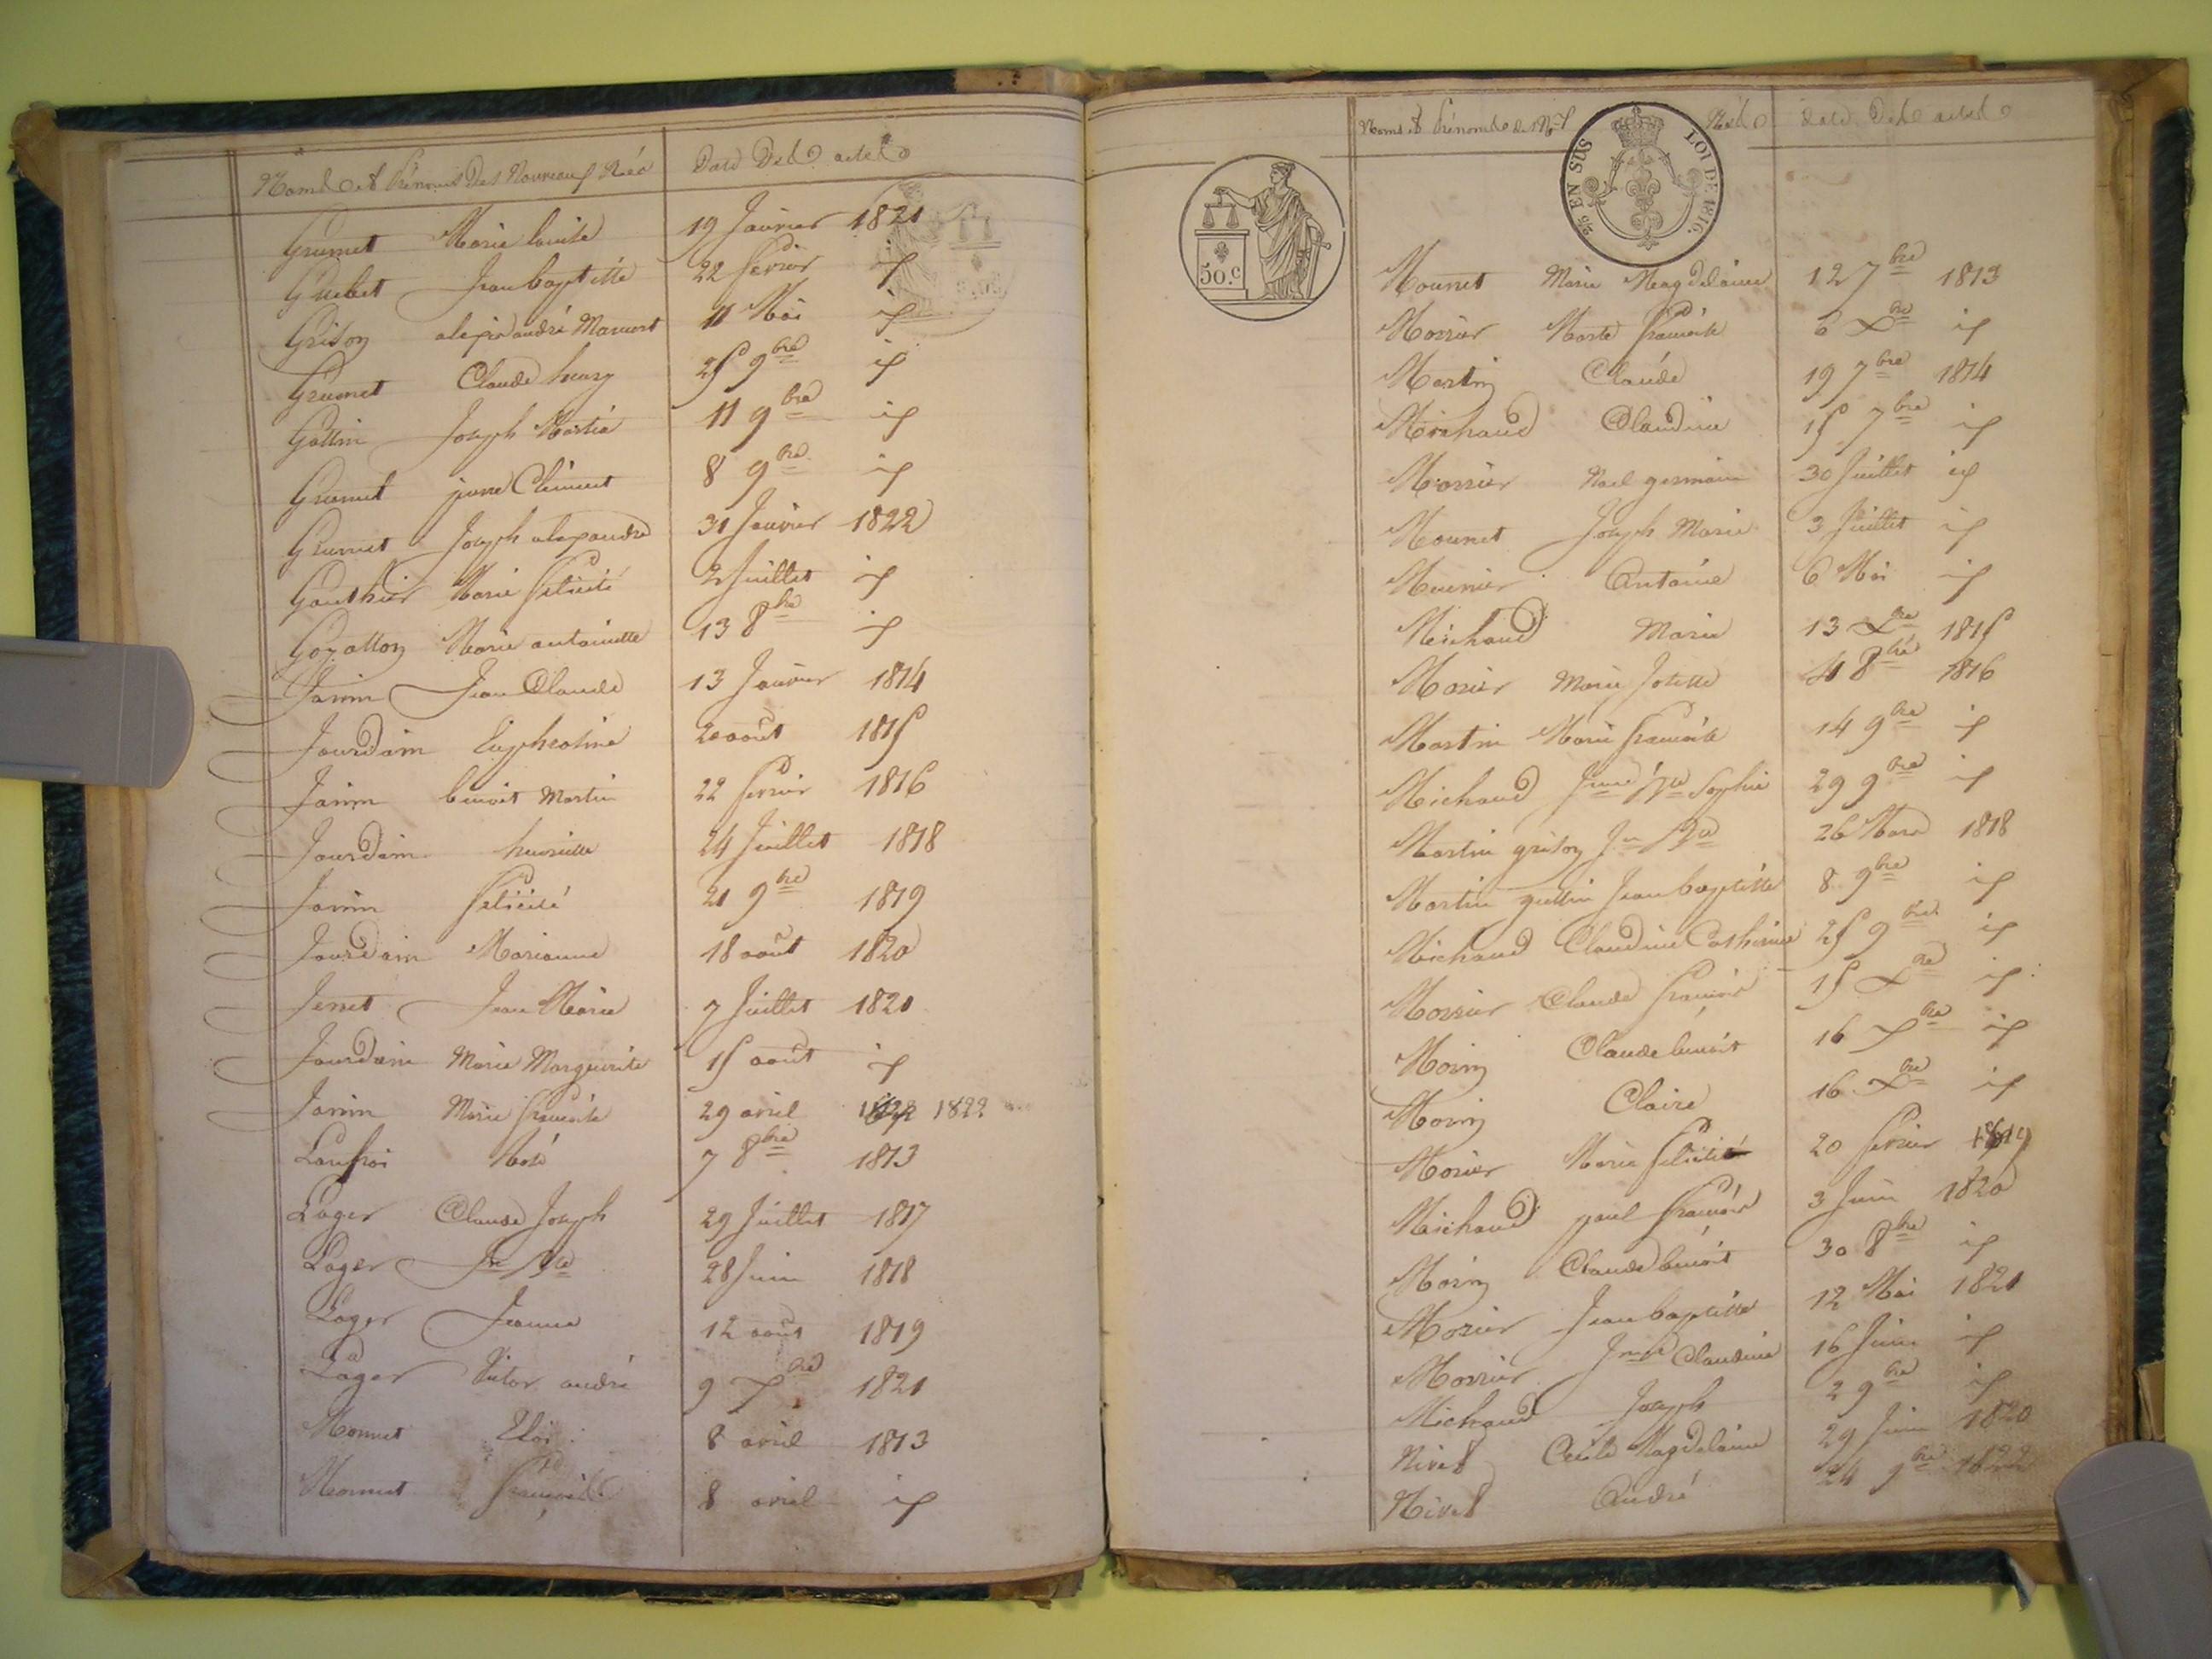 Noms et Prénoms des Nouveaux Nés Date Des actes
Grumet Marie louise 19 Janvier 1821
Guebet Jean baptiste 22 fevrier id
Grison alexandre 11 Mai id
Grumet Claude henry 25 9bre id
Guttin Joseph 11 9bre id
Grumet pierre Clément 8 9bre id
Grumet Joseph alexandre 31 Janvier 1822
Gauthier Marie félicité 2 Juillet id
Goyatton Marie antoinette 13 8bre id
Janin Jean Claude 13 Janvier 1814
Jourdain Euphrosine 20 août 1815
Janin benoit Martin 22 fevrier 1816
Jourdain henriette 24 Juillet 1818
Janin félicité 21 9bre 1819
Jourdain Marianne 18 août 1820
Jenet Jean Marie 7 Juillet 1821
Jourdain Marie Marguerite 15 août id
Janin Marie françoise 29 avril 1822
Lanfroi 7 8bre 1813
Lager Claude Joseph 29 Juillet 1817
Lager Jn Bte 28 Juin 1818
Lager Jeanne 12 août 1819
Lager Victor andré 9 1821
Monnet Eloi 8 avril 1813
Monnet 8 avril id
Noms et Prénoms des Nx Nés Date Des actes
2/5 EN SUS LOI DE 1816.
50.c
Mounet Marie Magdelaine 12 7bre 1813
Morrier françoise 6 Xbre id
Martin Claude 19 7bre 1814
Michaud Claudine 15 7bre id
Morrier Noel germain 30 Juillet id
Mounet Joseph Marie 3 Juillet id
Meunier Antoine 6 Mai id
Michaud Marie 13 Xbre 1815
Morier Marie Josette 8bre 1816
Martin Marie françoise 14 9bre id
Michaud Sophie 29 9bre id
Martin grison Jn Bte 26 Mars 1818
Martin guttin Jean baptiste 8 9bre id
Michaud Claudine Catherine 25 9bre id
Morrier Claude françois 15 Xbre id
Morin Claude benoit 16 Xbre id
Morin Claire 16 Xbre id
Morier Marie félicité 20 fevrier 1819
Michaud paul françois 3 Juin 1820
Morin Claude benoit 30 8bre id
Morier Jean baptiste 12 Mai 1821
Morrier Claudine 16 Juin id
Michaud Joseph 2 9bre id
Nivet Cecile Magdelaine 29 Juin 1820
Nivet André 24 9bre 1822